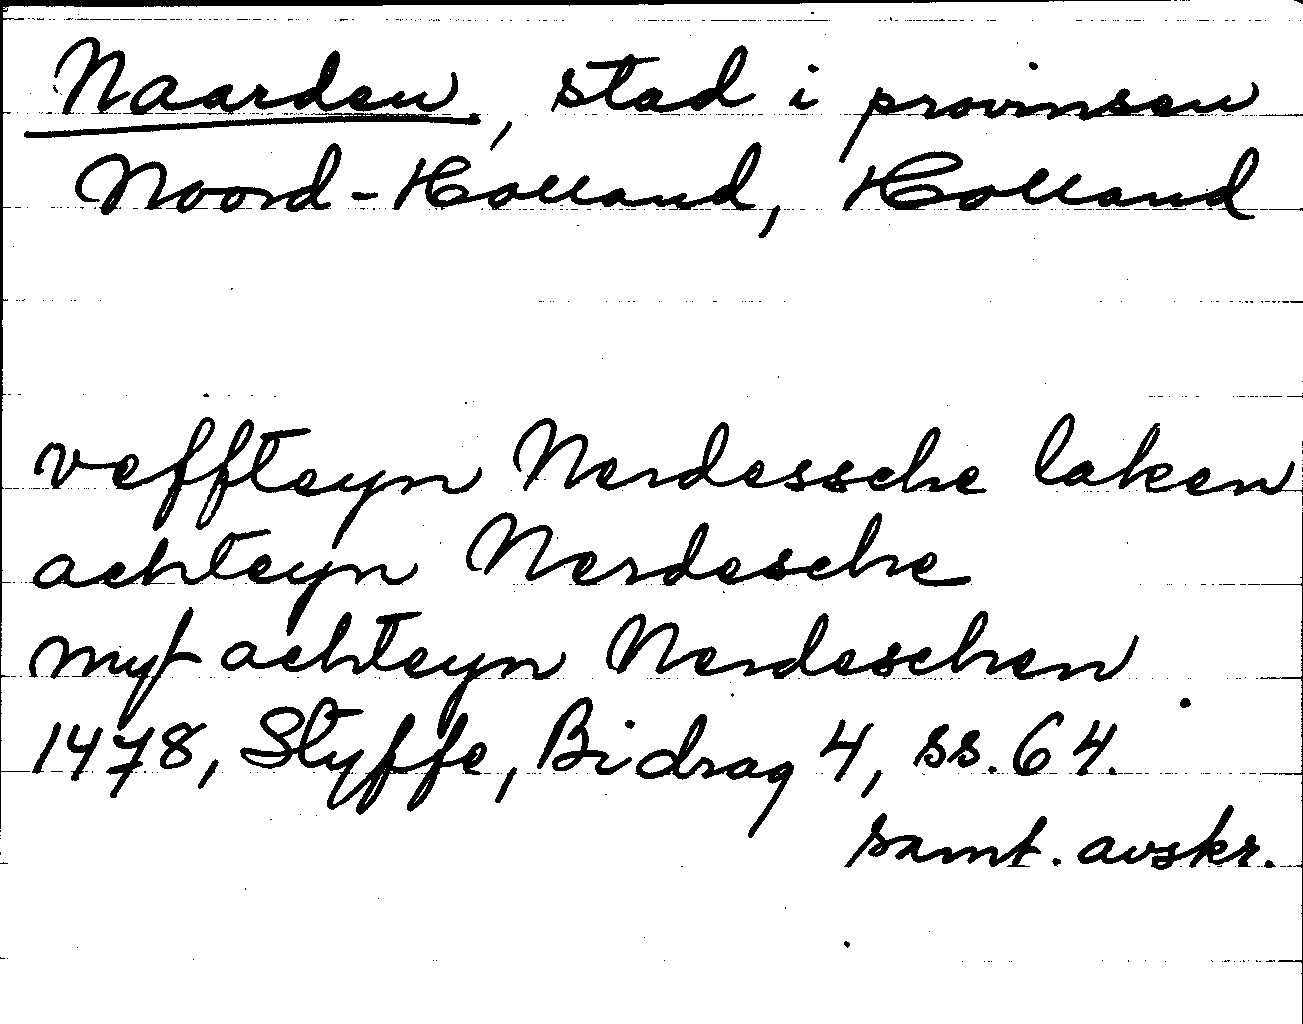 Naarden, stad i provinsen
Noord-Holland, Holland
veffteyn Nerdessche laken
achteyn Nerdesche
myt achteyn Nerdeschen
1478, Styffe, Bidrag 4, ss. 64.
samt. avskr.